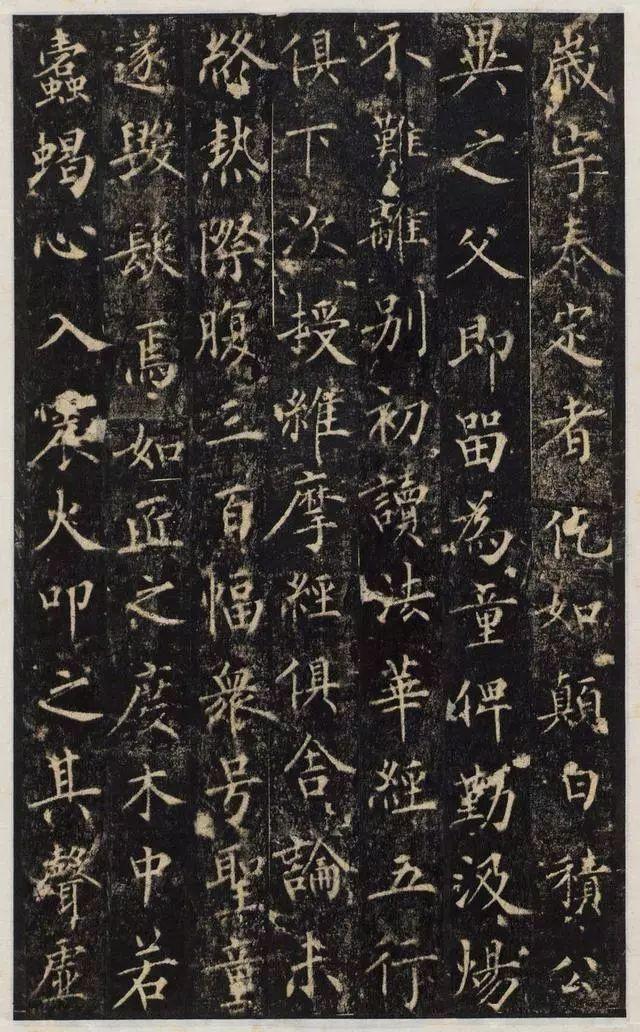 歲宇泰定者仡如顛白積公
異之父即留為童俾勤汲煬
不難離別初讀法華經五行
俱下次授維摩經俱舍論未
終熱際腹三百幅衆号聖童
遂毀焉如匠之度木中若
蠹蝎心入火叩之其聲虛